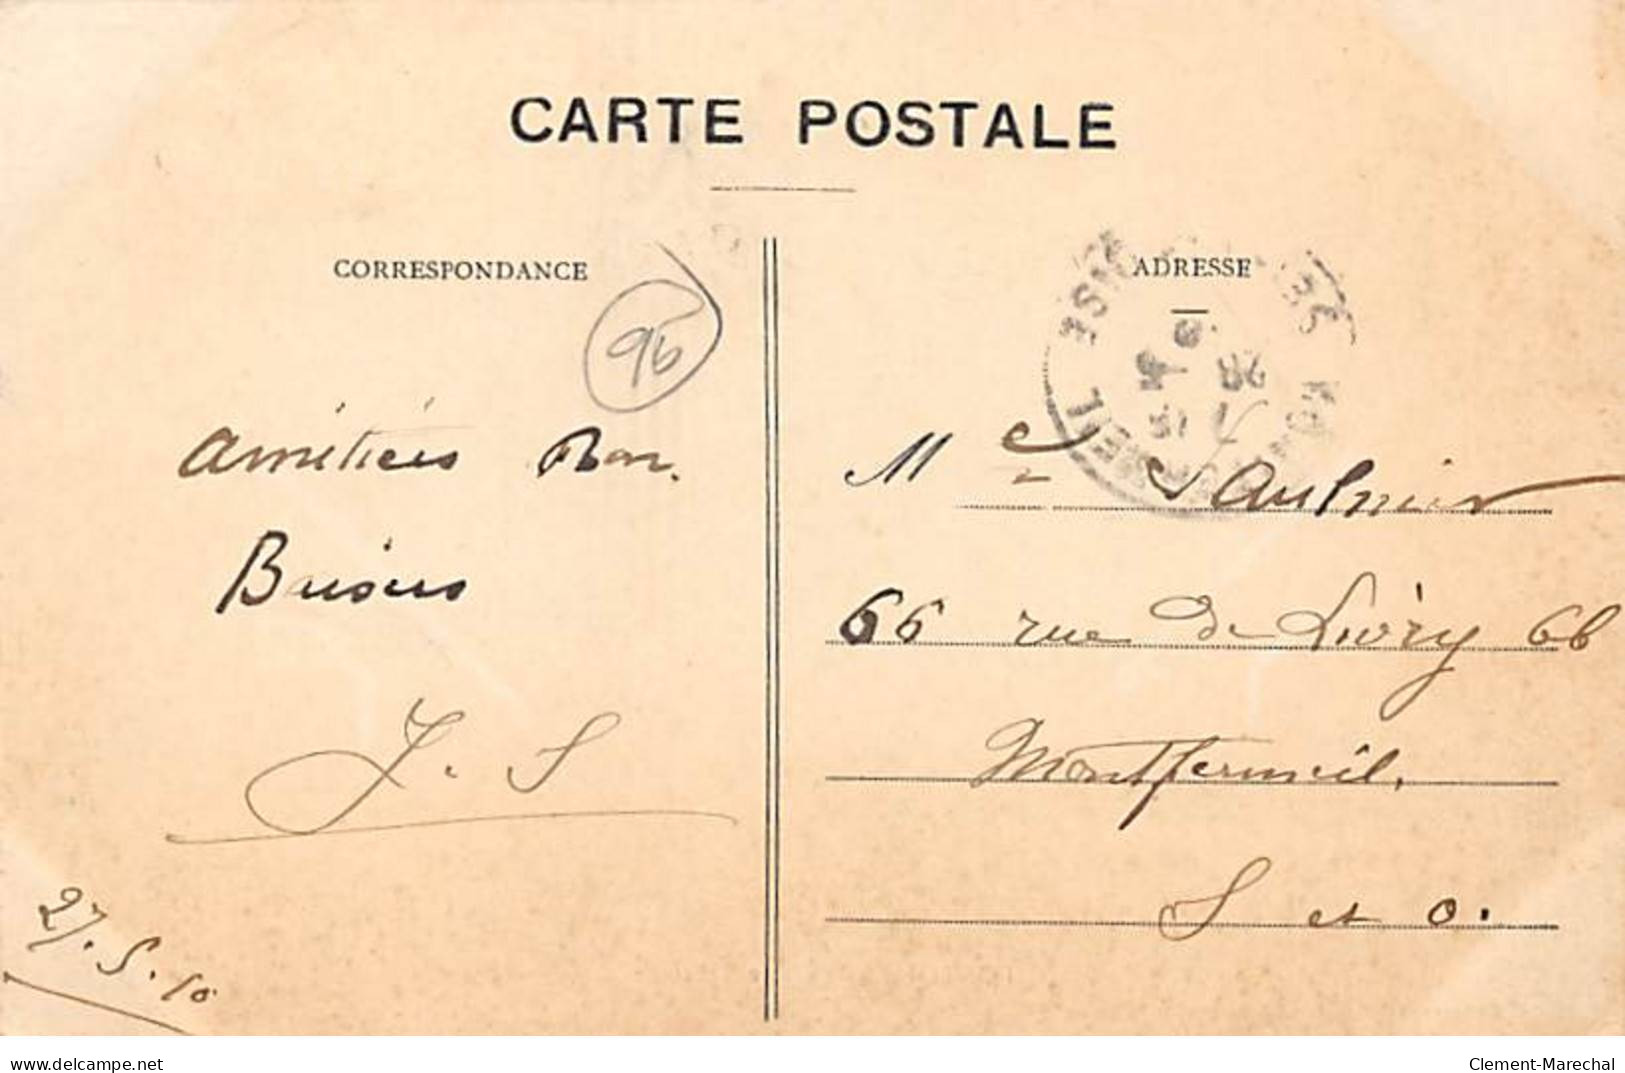 CARTE POSTALE
CORRESPONDANCE
96
Amitiés Bon.
Baisers
J. S
27.5.10
ADRESSE
Melle Saulnier
66 rue de Livry 66
Montfermeil,
S et O.
delcampe.net
Clement-Marechal